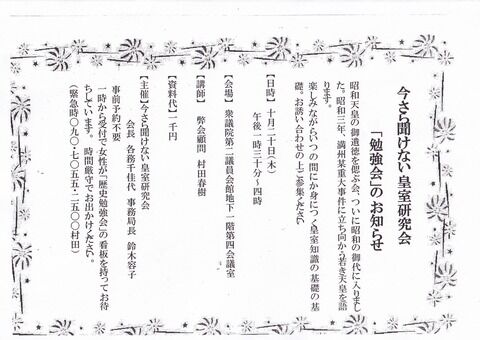 今さら聞けない皇室研究会
「勉強会」のお知らせ
昭和天皇の御遺徳を偲ぶ会、ついに昭和の御代に入りまし
た。昭和三年、満州某重大事件に立ち向かう若き天皇を語
ります。
楽しみながらいつの間にか身につく皇室知識の基礎の基
礎。お誘い合わせの上ご参集ください
【日時】十月二十日(木)
午後一時三十分〜四時
【会場】衆議院第二議員会館地下一階第四会議室
【講師】弊会顧問 村田春樹
【資料代】一千円
【主催】今さら聞けない皇室研究会
会長 各務千佳代 事務局長 鈴木容子
事前予約不要
一時から受付で女性が「歴史勉強会」の看板を持ってお待
ちしています。 時間厳守でお出かけください。
(緊急時〇九〇・七〇五五・二五〇〇村田)